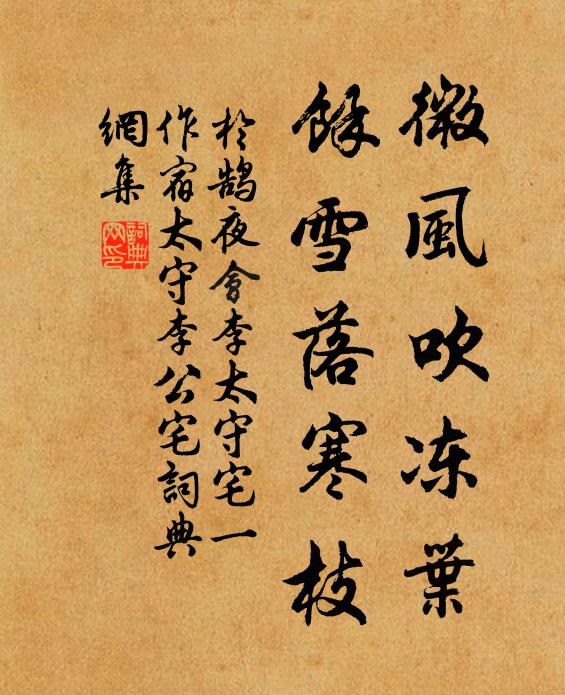 微風吹冻葉
餘雪落寒枝
於鹄夜會李太守宅一
作宿太守李公宅詞典
網集
詞典
网印